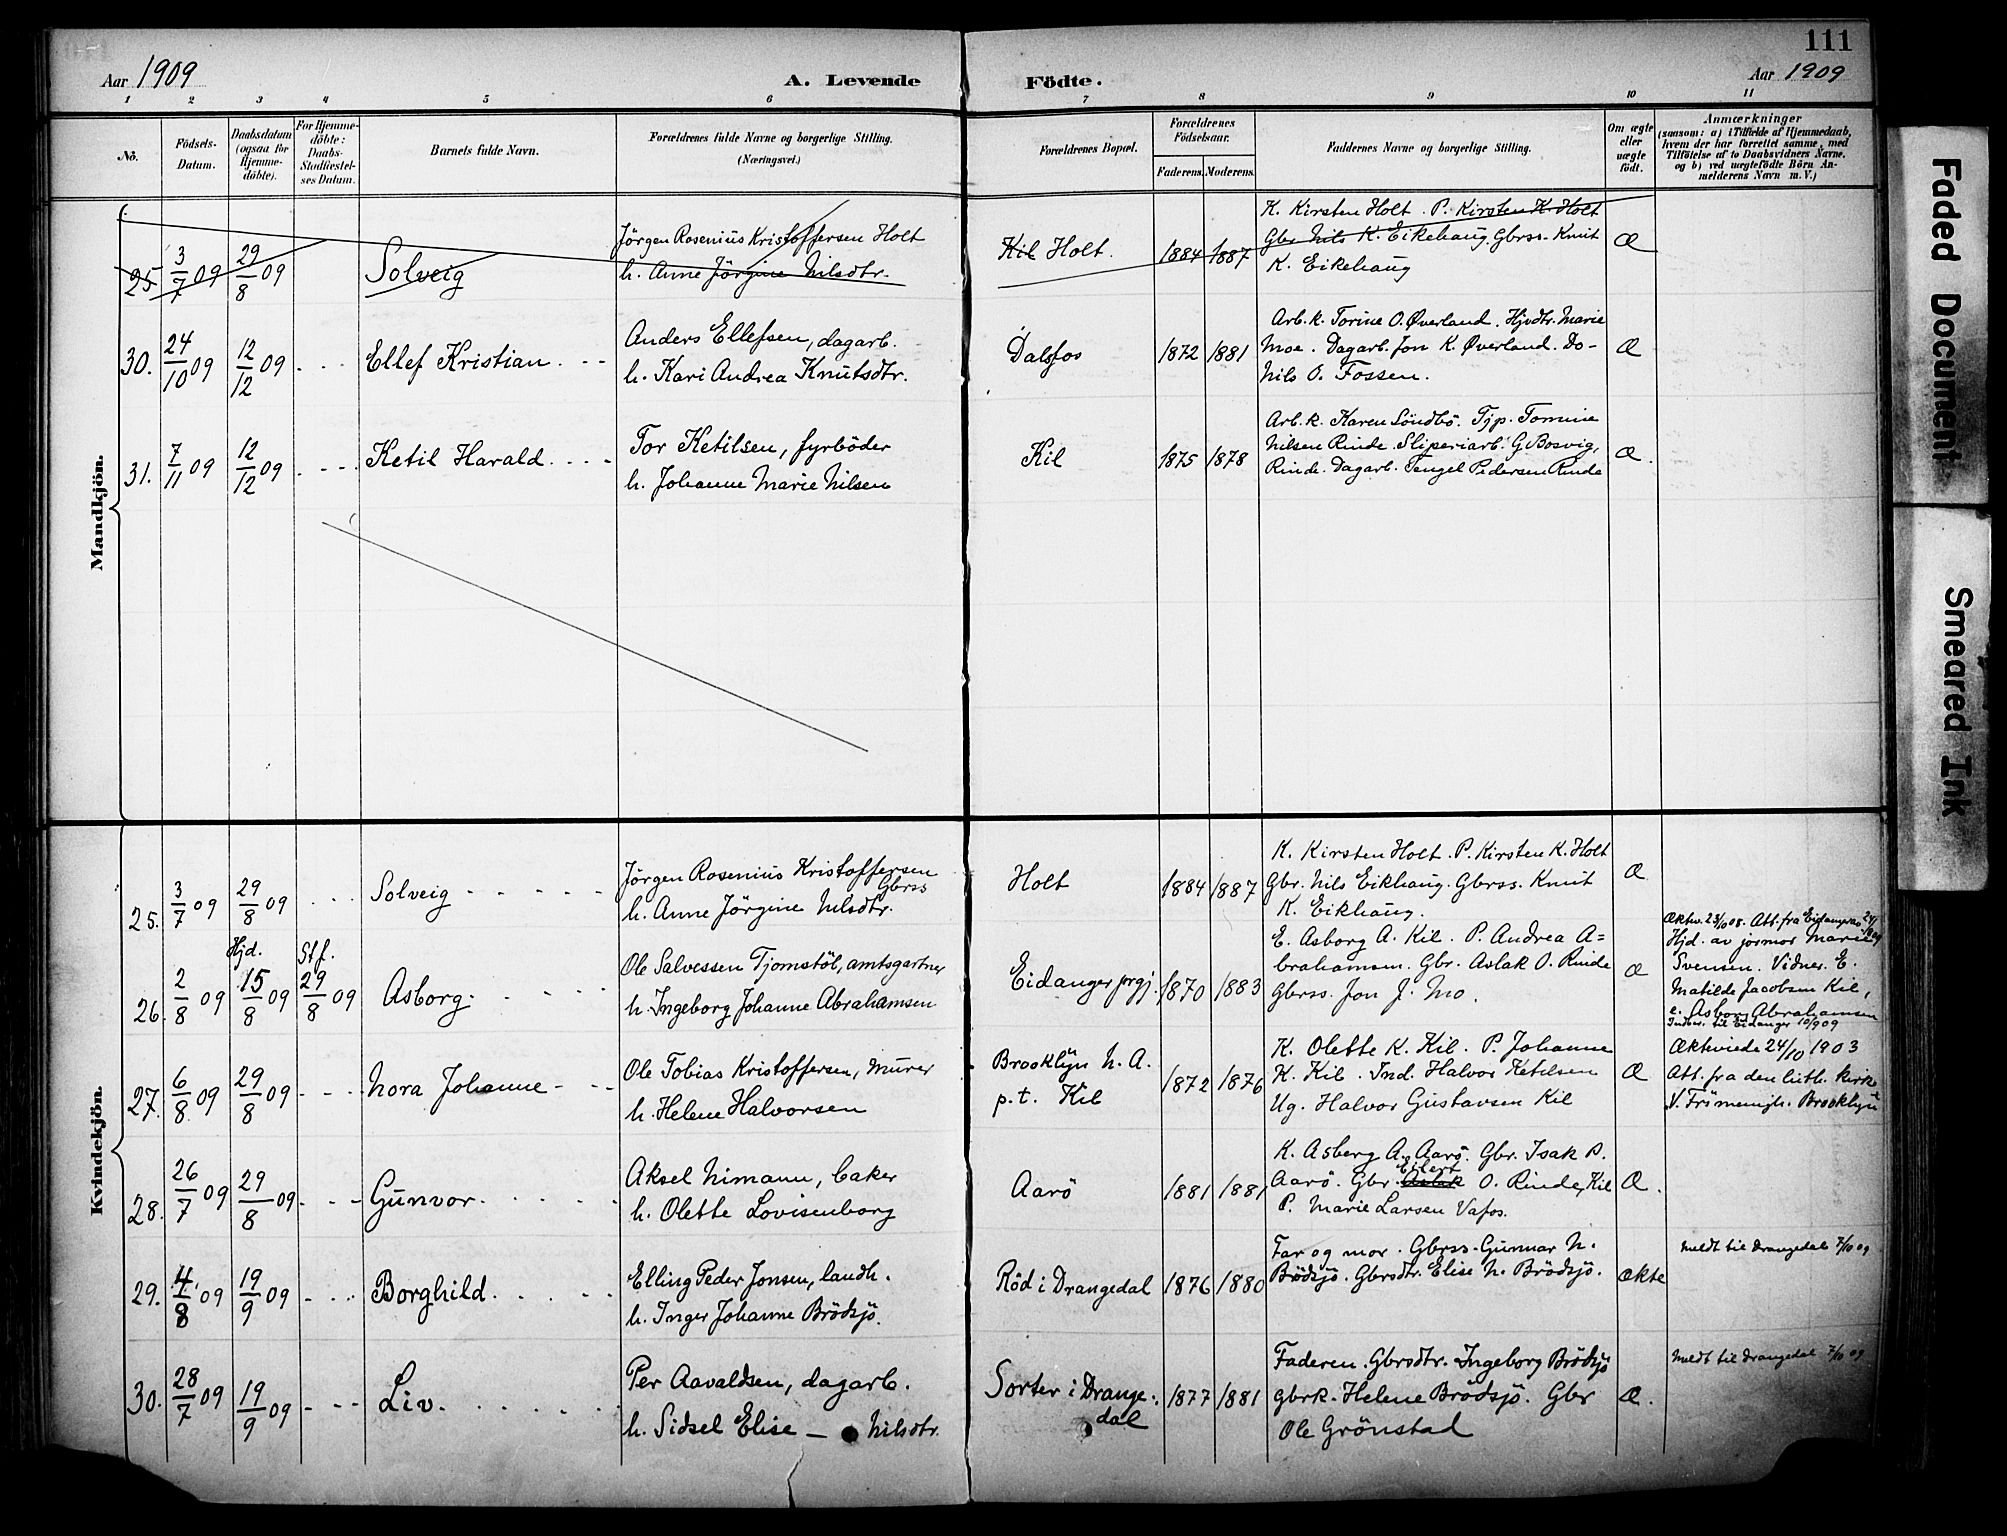 111
Aar 1909
A. Levende Födte.
Aar 1909
1 2 3 4 5 6 7 8 9 10 11
No.
Födsels-
Datum.
Daabsdatum
(ogsaa for
Hjemme-
döbte).
For Hjemme-
döbte:
Daabs-
Stadfæstel-
ses Datum.
Barnets fulde Navn.
Forældrenes fulde Navne og borgerlige Stilling.
(Næringsvei.)
Forældrenes Bopæl.
Forældrenes
Födselsaar.
Faderens. Moderens.
Faddernes Navne og borgerlige Stilling.
Om ægte
eller
uægte
født.
Anmærkninger
(saasom: a) i Tilfælde af Hjemmedaab,
hvem der har forrettet samme, med
Tilföielse af to Daabsvidners Navne,
og b) ved uægtefödte Börn An-
melderens Navn m. V.)
Mandkjön.
25. 3/7 09 29/8 09 Solveig
Jörgen Rosenius Kristoffersen Holt
h. Anne Jörgine Nilsdtr.
Kil Holt. 1884 1887
K. Kirsten Holt. P. Kirsten K. Holt
Gbr Nils K. Eikehaug. Gbrss. Knut
K. Eikehaug
Æ
30. 24/10 09 12/12 09 - - - Ellef Kristian. - -
Anders Ellefsen, dagarb.
h. Kari Andrea Knutsdtr.
Dalsfos 1872 1881
Arb.k. Torine O. Øverland. Hjvdtr. Marie
Moe. Dagarb. Jon K. Øverland. Do-
Nils O. Fossen.
Æ
31. 7/11 09 12/12 09 - - - Ketil Harald. - - -
Tor Ketilsen, fyrböder
h. Johanne Marie Nilsen
Kil 1875 1878
Arb.k. Karen Söndbö. Tjp. Tomine
Nilsen Rinde. Sliperiarb. G. Bosvig,
Rinde. Dagarb. Tengel Pedersen Rinde
Æ.
Kvindekjön.
25. 3/7 09 29/8 09 - - - Solveig - - - - -
Jörgen Rosenius Kristoffersen
Gbrss
h. Anne Jörgine Nilsdtr.
Holt 1884 1887
K. Kirsten Holt. P. Kirsten K. Holt
Gbr. Nils Eikhaug. Gbrss. Knut
K. Eikhaug.
Æ
Hjd. Stf.
26. 2/8 09 15/8 09 29/8 09 Asborg. - - - -
Ole Salvessen Tjomstöl, amtsgartner
h. Ingeborg Johanne Abrahamsen
Eidanger prgj. 1870 1883
E. Asborg A. Kil. P. Andrea A=
brahamsen. Gbr. Aslak O. Rinde
Gbrss. Jon J. Mo.
Æ
Æktev. 23/10 08. Att. fra Eidanger 24/8 09
Hjd. av jormor Marie
Svensen. Vidner. E.
Matilde Jacobsen Kil,
e. Asborg Abrahamsen
Indber. til Eidanger 10/9 09
27. 6/8 09 29/8 09 - - - Nora Johanne - - -
Ole Tobias Kristoffersen, murer
h. Helene Halvorsen
Brooklyn N. A.
p.t. Kil
1872 1876
K. Olette K. Kil. P. Johanne
K. Kil. Ind. Halvor Ketilsen
Ug. Halvor Gustavsen Kil
Æ
Ækteviede 24/10 1903
Att. fra den luth. kirke
V. Frimenigh. Brooklyn
28. 26/7 09 29/8 09 - - - Gunvor. - - - -
Aksel Nimann, baker
h. Olette Lovisenborg
Aarö 1881 1881
K. Asberg A. Aarö. Gbr. Isak P.
Eilert
Aarö. Gbr. Aslak O. Rinde, Kil
P. Marie Larsen Vafos.
Æ.
29. 4/8 09 19/9 09 - - - Borghild. - - - -
Elling Peder Jonsen, landh.
h. Inger Johanne Brödsjö.
Röd i Drangedal 1876 1880
Far og mor. Gbrss. Gunnar N.
Brödsjö. Gbrsdtr. Elise N. Brödsjö.
Ækte
Meldt til Drangedal 7/10 09
30. 28/7 09 19/9 09 - - - Liv. - - - - -
Per Aavaldsen, dagarb.
h. Sidsel Elise — Nilsdtr.
Sorter i Drange-
dal
1877 1881
Faderen. Gbrsdtr. Ingeborg Brödsjö
gbrk. Helene Brödsjö. Gbr
Ole Grönstad
Æ.
Meldt til Drangedal 7/10 09
Faded Document
Smeared Ink